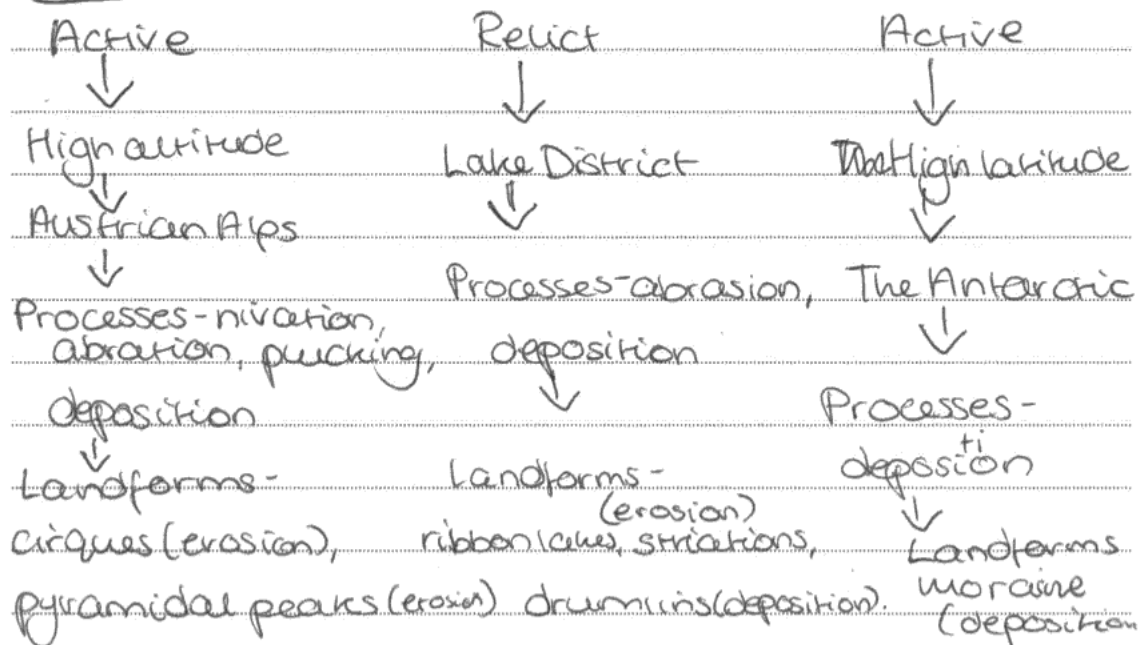 Active
High altitude
Austrian Alps
Processes-nivation,
abration, plucking,
deposition
Landforms-
cirques (erosion),
pyramidal peaks (erosion)
Relict
Lake District
Processes-abrasion,
deposition
Landforms-
(erosion)
ribbon lakes, striations,
drumlins (deposition).
Active
High latitude
The Antarctic
Processes-
deposition
Landforms
moraine
(deposition